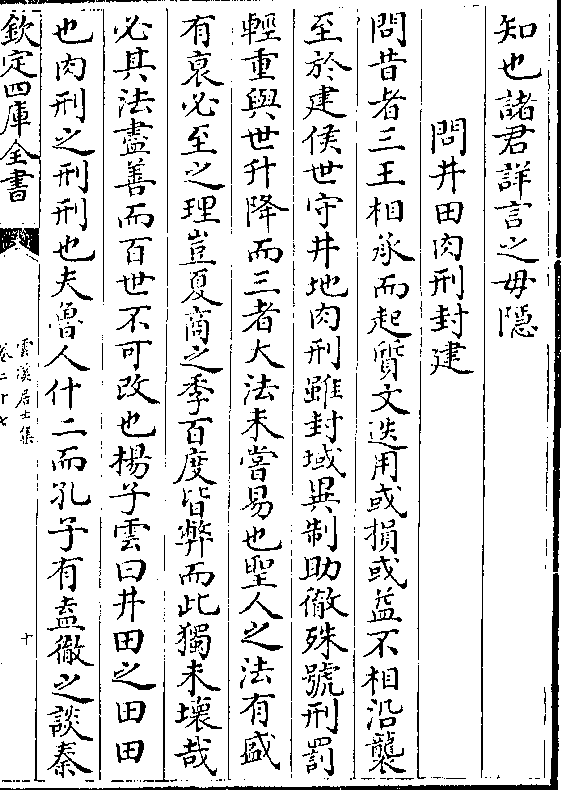 知也諸君詳言之毋隱
問井田肉刑封建
問昔者三王相承而起質文迭用或損或益不相沿襲
至於建侯世守井地肉刑雖封域異制助徹殊號刑罰
輕重與世升降而三者大法未嘗易也聖人之法有盛
有衰必至之理豈夏商之季百度皆弊而此獨未壞哉
必其法盡善而百世不可改也楊子雲曰井田之田田
也肉刑之刑刑也夫魯人什二而孔子有盍徹之談秦
欽定四庫全書
雲溪居士集
卷二十七
十